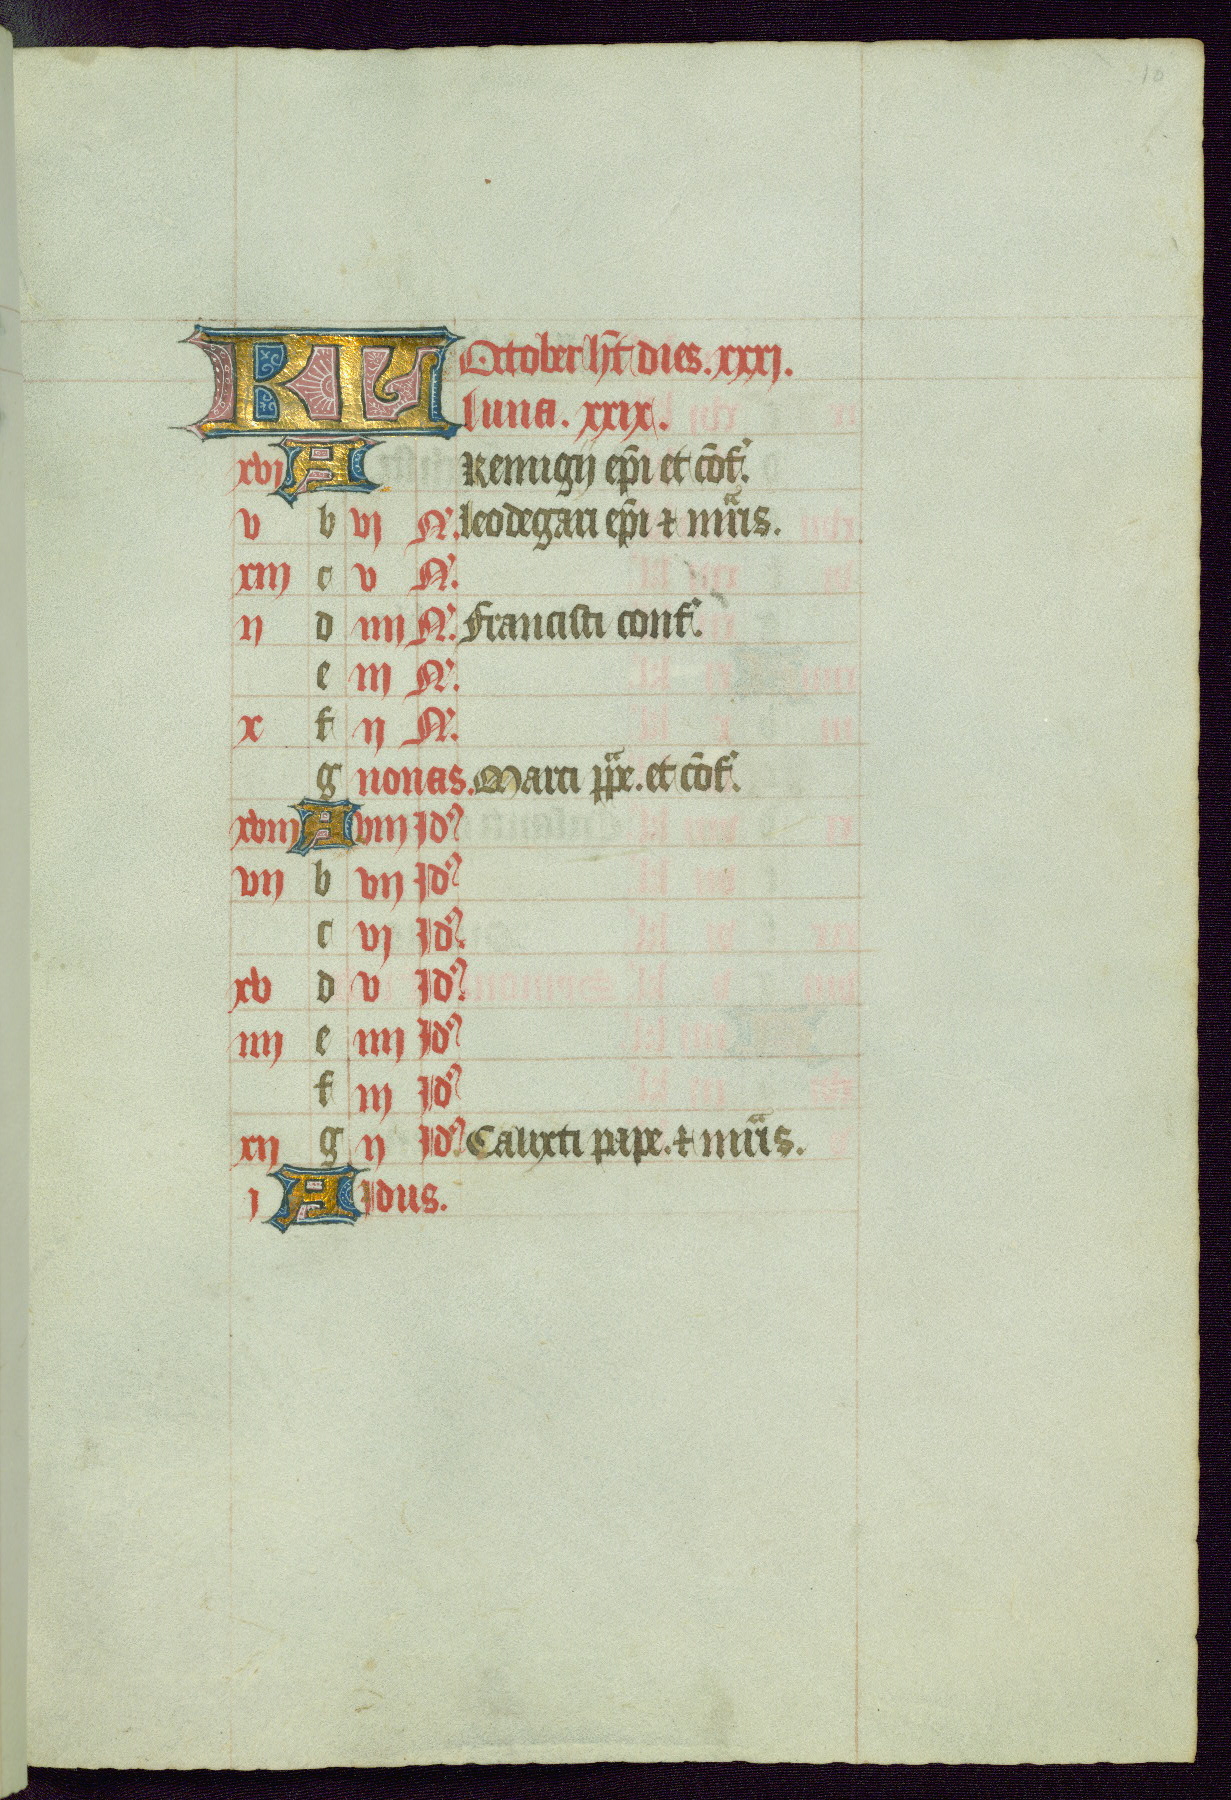 KL October ht̄ dies. xxxj.
luna. xxix.
xvj A Remigij ep̄i et cōf.
v b vj N. leodegari ep̄i ⁊ mr̄is.
xiij c v N.
ij d iiij N. Francisci conf.
e iij N.
x f ij N.
g nonas. Marci pp̄e. et cōf.
xviij A viij Jd
vij b vij Jd
c vj Jd.
xv d v Jd.
iiij e iiij Jd
f iij Jd
xij g ij Jd Calixti pape. ⁊ mr̄is.
j A jdus.
10